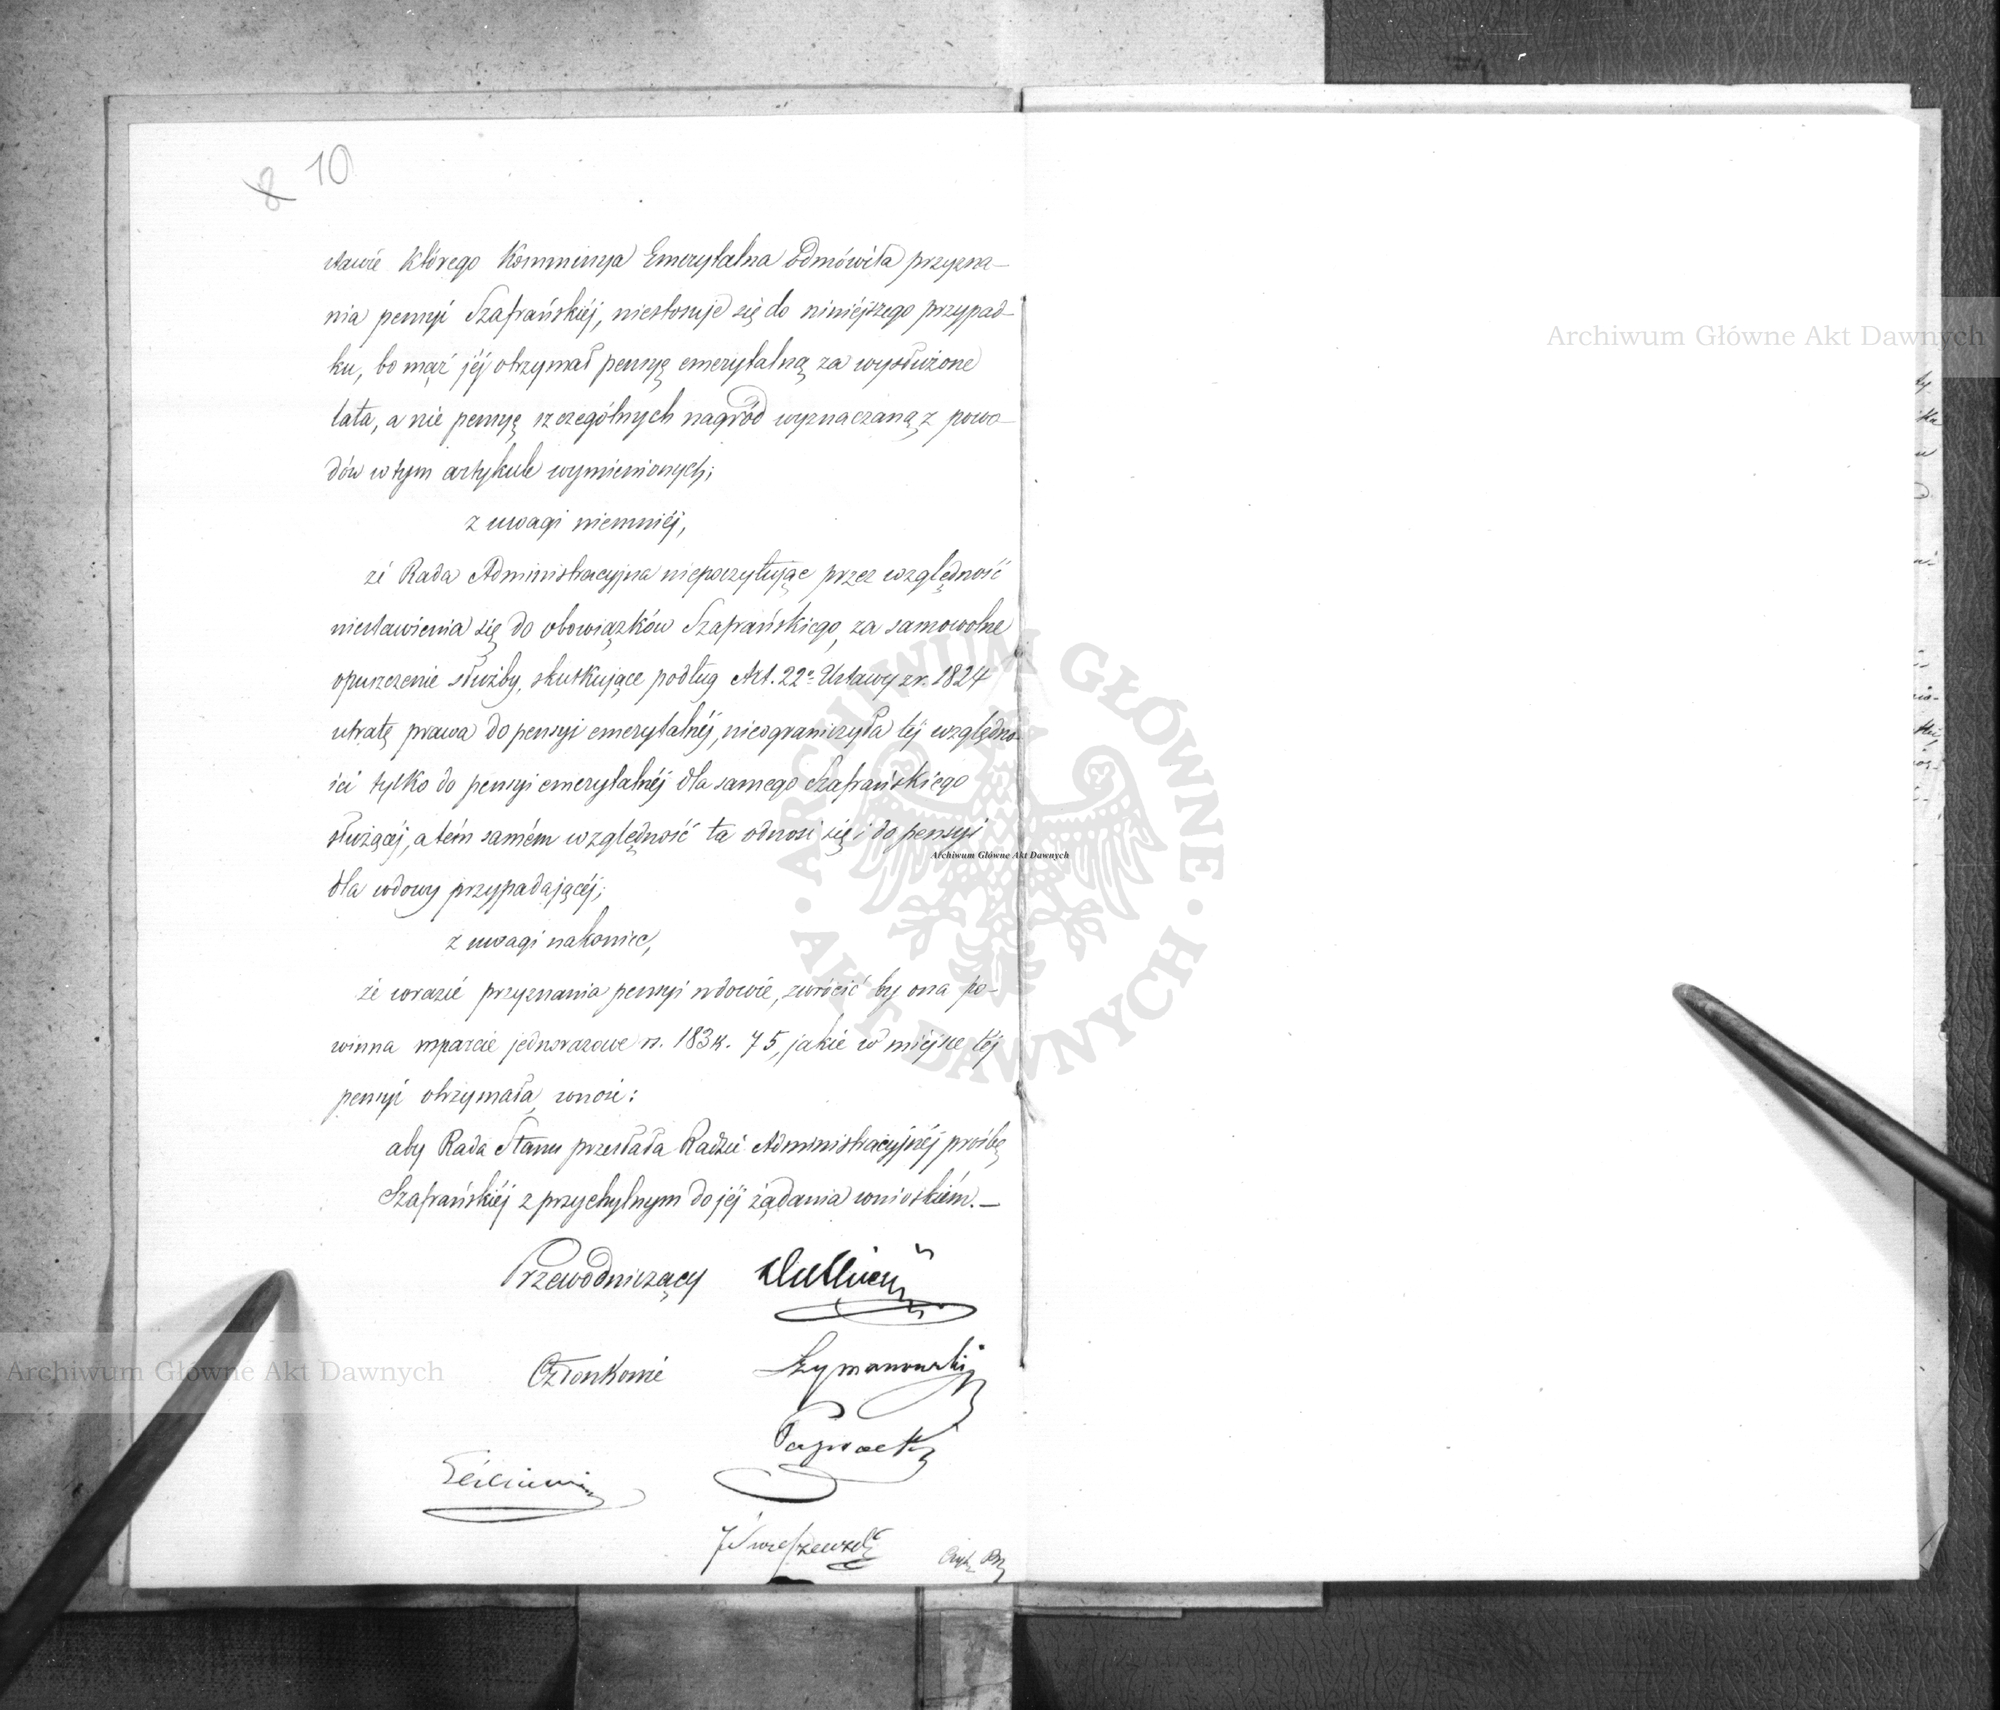 8 10
stawie którego Kommissya Emerytalna odmówiła przyzna-
nia pensyi Szafrańskiéj, niestosuje się do niniéjszego przypad-
ku, bo mąż jéj otrzymał pensyę emerytalną za wysłużone
lata, a nie pensyę szczególnych nagród wyznaczaną z powo-
dów w tym artykule wymienionych;
z uwagi niemniéj,
że Rada Administracyjna niepoczytując przez względność
niestawienia się do obowiązków Szafrańskiego, za samowolne
opuszczenie służby, skutkujące podług Art. 22º Ustawy z r. 1824
utratę prawa do pensyi emerytalnéj, nieograniczyła téj względno-
ści tylko do pensyi emerytalnéj dla samego Szafrańskiego
służącéj, a tém samém względność ta odnosi się i do pensyi
dla wdowy przypadającéj;
z uwagi nakoniec,
że w razie przyznania pensyi wdowie, zwrócić by ona po-
winna wparcie jednorazowe rs. 183 k. 75, jakie w miejsce téj
pensyi otrzymała, wnosi:
aby Rada Stanu przesłała Radzie Administracyjnéj prośbę
Szafrańskiéj z przychylnym do jéj żądania wnioskiém.—
Przewodniczący
Członkowie Szymanowski
Archiwum Główne Akt Dawnych
Archiwum Główne Akt Dawnych
Archiwum Główne Akt Dawnych
ARCHIWUM GŁÓWNE
AKT DAWNYCH